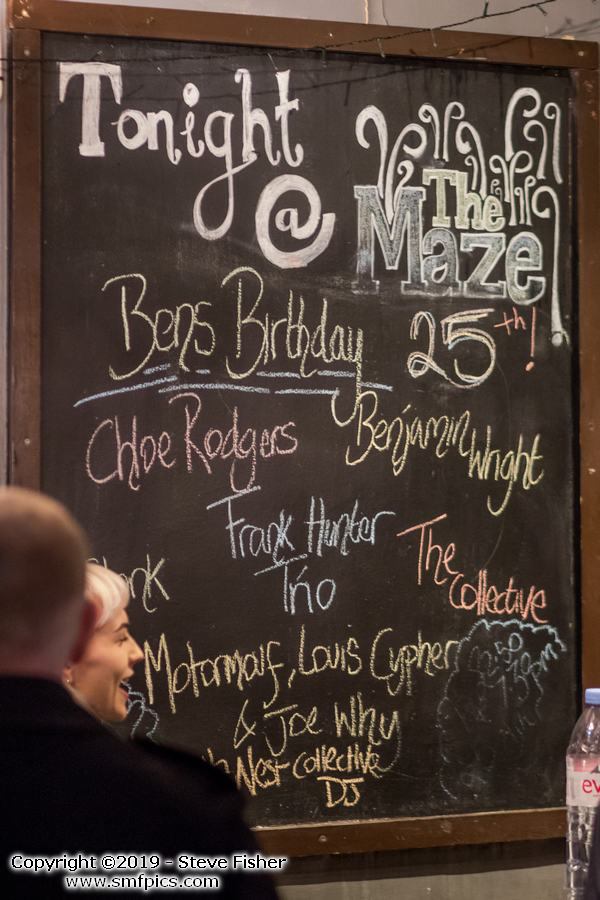 Tonight
@
The
Maze
Bens Birthday 25th!
Chloe Rodgers
Benjamin Wright
Frank Hunter
Trio
The
Collective
Motormarf, Louis Cypher
& Joe Why
West-collective
DJ
ev
Copyright ©2019 - Steve Fisher
www.smfpics.com